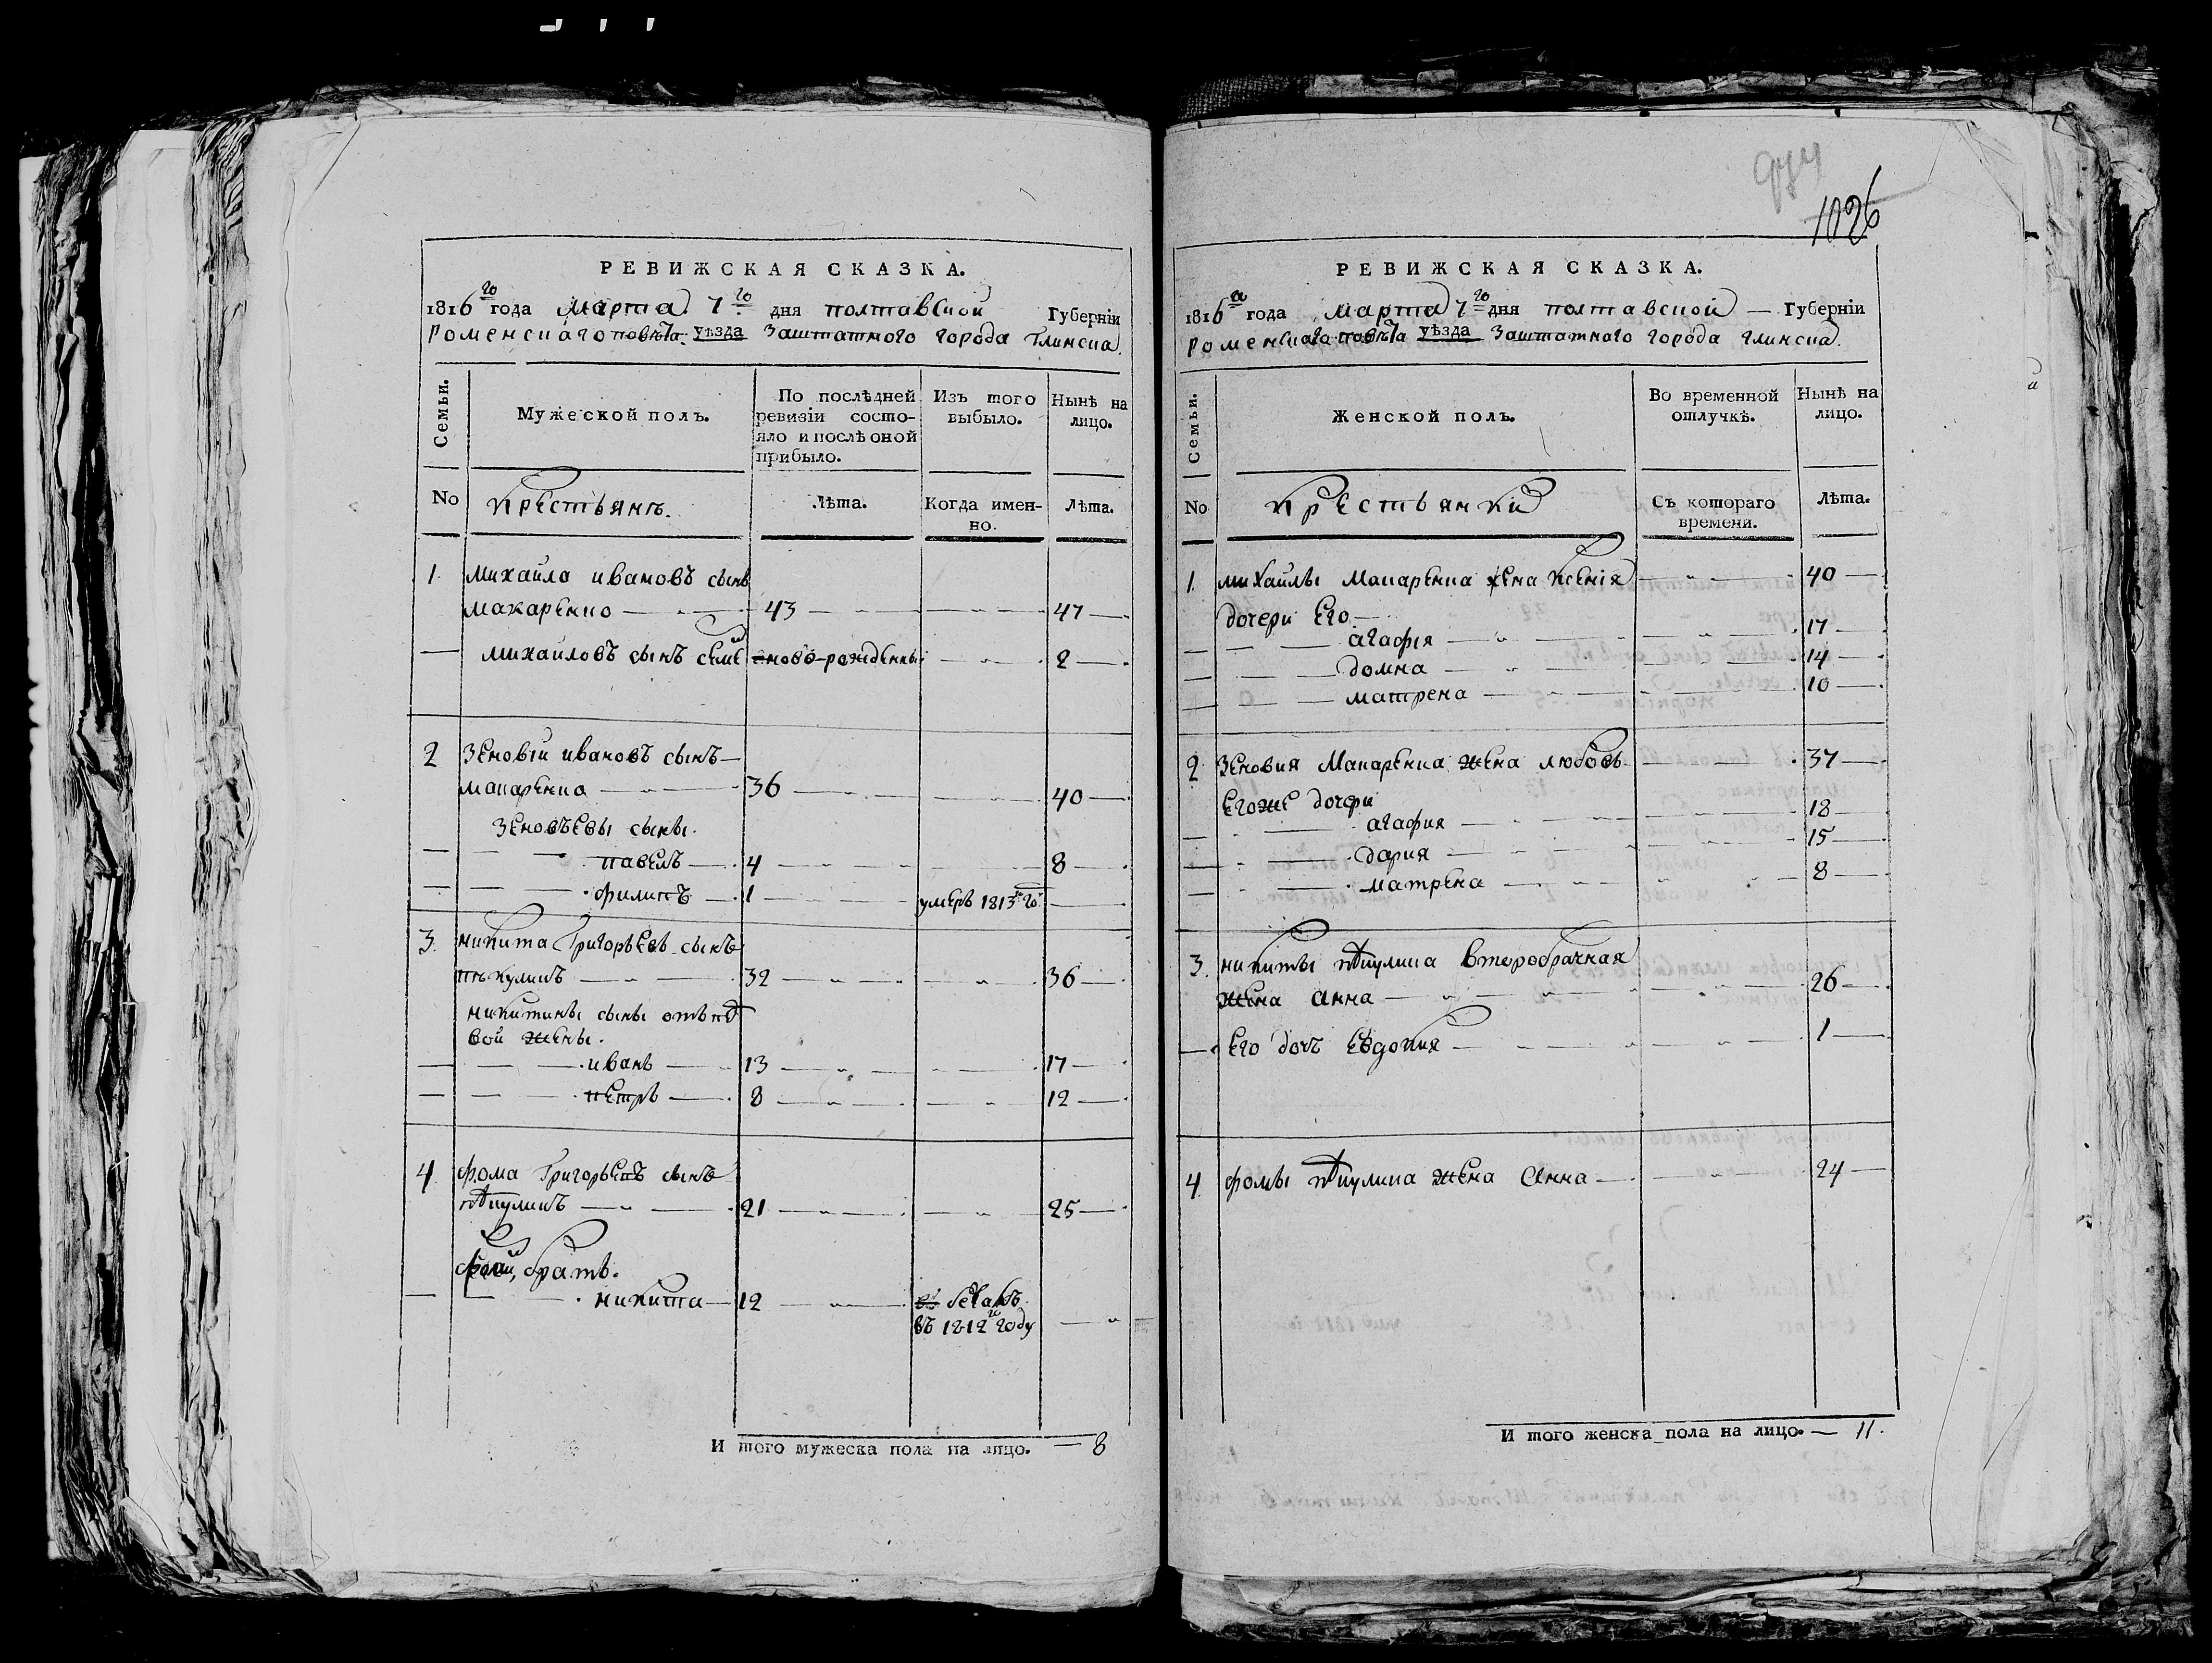 РЕВИЖСКАЯ СКАЗКА.
1816го года Марта 7го дня полтавской Губерніи
Роменскаго повѣта уѣзда Заштатного города Глинска.
Семьи.
Мужеской полъ.
По послѣдней ревизіи состояло и послѣ оной прибыло.
Изъ того выбыло.
Нынѣ на лицо.
No
крестьянъ.
Лѣта.
Когда именно.
Лѣта.
1. Михайло ивановъ сынъ
макаренко 43 47
михайловъ сынъ новорожденный 2
2 Зеновій ивановъ сынъ
макаренко 36 40
Зеновъевы сыны.
павелъ 4 8
филипъ 1 умеръ 1813го го
3. никита Григорьевъ сынъ
пѣкулинъ 32 36
никитины сыны отъ
вой жены.
иванъ 13 17
петръ 8 12
4. фома Григорьевъ сынъ
21 25
братъ.
никита 12
въ 1812го году
И того мужеска пола на лицо. 8
1026
РЕВИЖСКАЯ СКАЗКА.
1816го года марта 7го дня полтавской Губерніи
роменскаго повѣта уѣзда Заштатнаго города глинска.
Семьи.
Женской полъ.
Во временной отлучкѣ.
Нынѣ на лицо.
No
крестьянки
Съ котораго времени.
Лѣта.
1. михайлы Макаренка жена ксенія 40
дочери Его
агафія 17
домна 14
матрена 10
2. Зеновия Макаренка жена любовъ 37
Егоже дочери
агафия 18
дария 15
матрена 8
3. никиты пѣкулина второбрачная
жена анна 26
Его дочъ Евдокия 1
4. фомы пѣкулина жена анна 24
И того женска пола на лицо. 11.